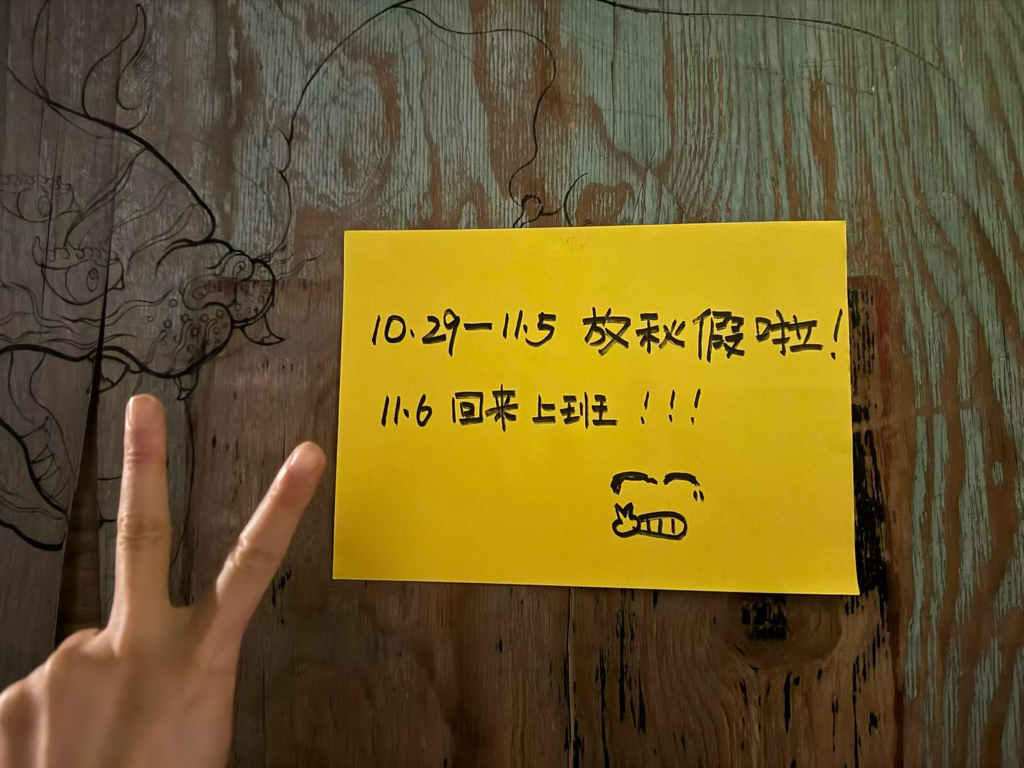 10.29—11.5 放秋假啦!
11.6 回来上班!!!